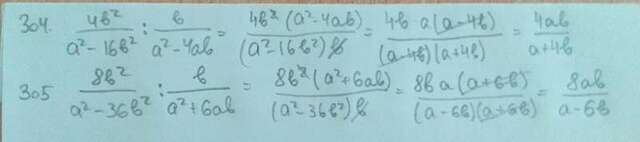 304. 4b²/(a² - 16b²) : b/(a² - 4ab) = 4b²(a² - 4ab)/((a² - 16b²)b) = 4b a(a - 4b)/((a - 4b)(a + 4b)) = 4ab/(a + 4b)
305 8b²/(a² - 36b²) : b/(a² + 6ab) = 8b²(a² + 6ab)/((a² - 36b²)b) = 8b a(a + 6b)/((a - 6b)(a + 6b)) = 8ab/(a - 6b)